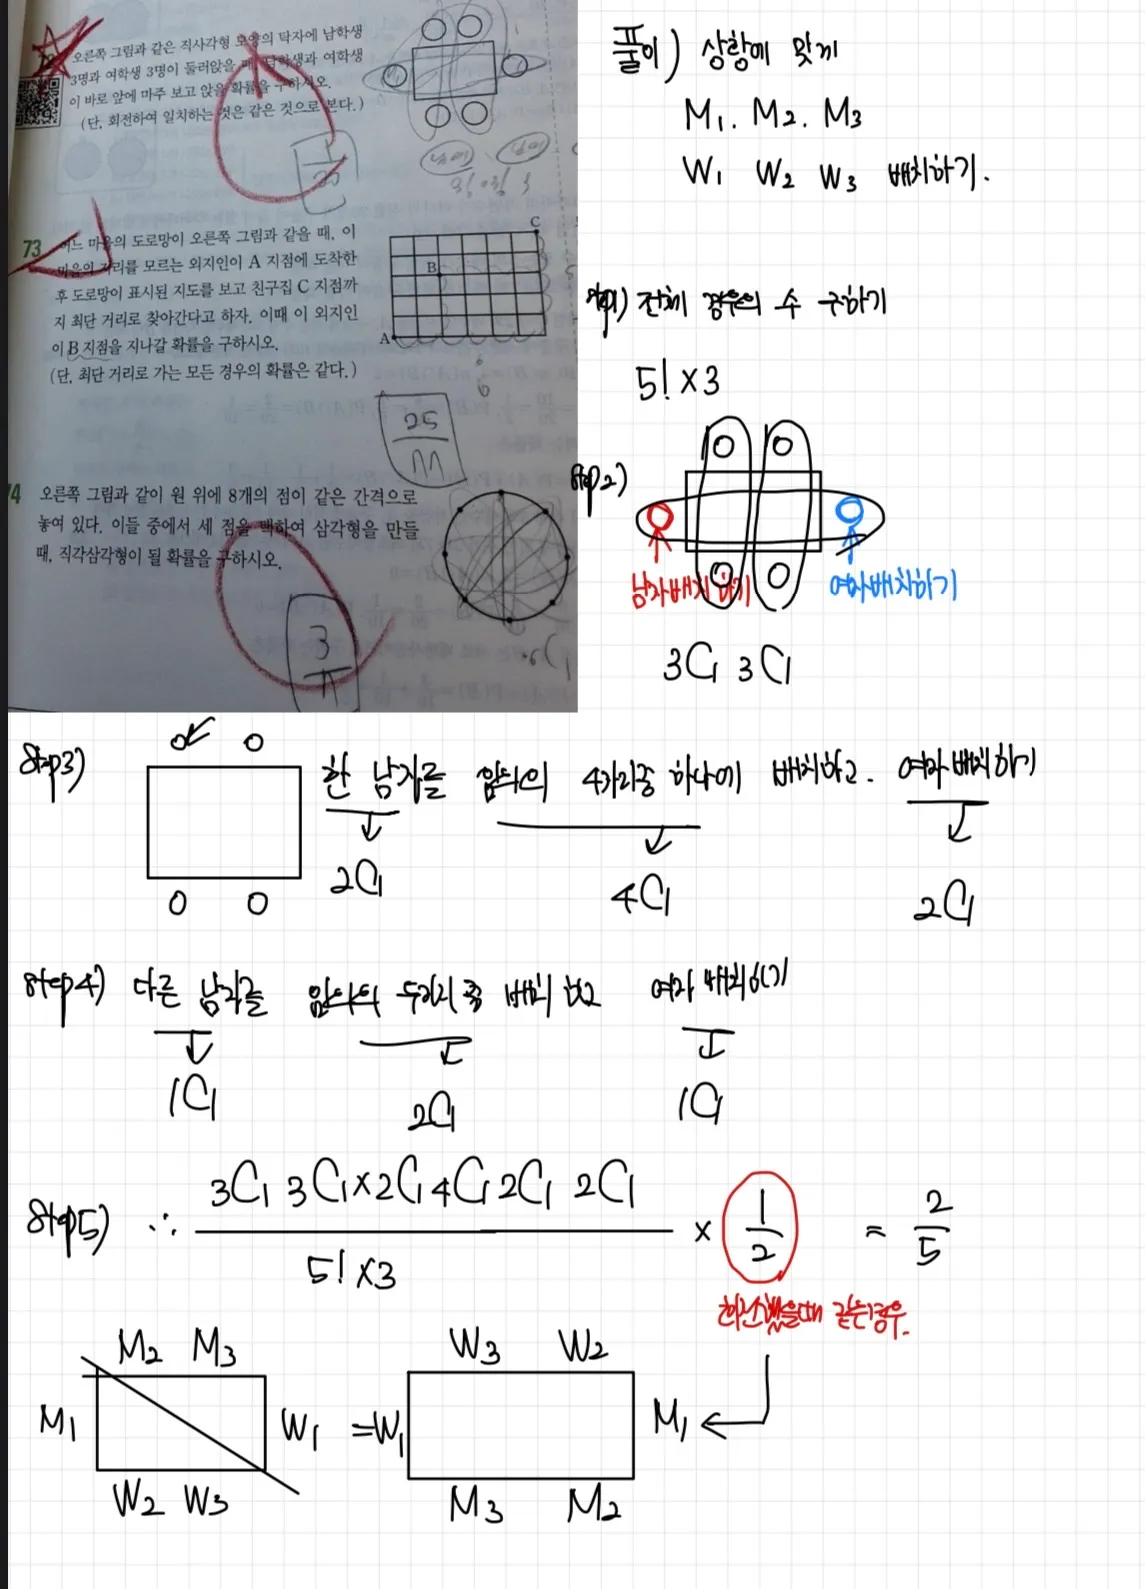 오른쪽 그림과 같은 직사각형 모양의 탁자에 남학생
3명과 여학생 3명이 둘러앉을 때, 남학생과 여학생
이 바로 앞에 마주 보고 앉을 확률을 구하시오.
(단, 회전하여 일치하는 것은 같은 것으로 본다.)
1/20
73 어느 마을의 도로망이 오른쪽 그림과 같을 때, 이
마을의 지리를 모르는 외지인이 A 지점에 도착한
후 도로망이 표시된 지도를 보고 친구집 C 지점까
지 최단 거리로 찾아간다고 하자. 이때 이 외지인
이 B 지점을 지나갈 확률을 구하시오.
(단, 최단 거리로 가는 모든 경우의 확률은 같다.)
C
B
A
6
25
4 오른쪽 그림과 같이 원 위에 8개의 점이 같은 간격으로
놓여 있다. 이들 중에서 세 점을 택하여 삼각형을 만들
때, 직각삼각형이 될 확률을 구하시오.
3
풀이) 상황에 맞게
M1. M2. M3
W1 W2 W3 배치하기.
전체 경우의 수 구하기
5! × 3
step2)
남자배치하기
여자배치하기
3C1 3C1
step3)
한 남자를 임의의 4자리중 하나에 배치하고. 여자 배치하기
2C1 4C1 2C1
step4) 다른 남자를 임의의 두자리 중 배치 하고 여자 배치하기
1C1 2C1 1C1
step5) ∴ 3C1 3C1 × 2C1 4C1 2C1 2C1 / 5! × 3 × 1/2 = 2/5
회전했을때 같은경우.
M2 M3 W3 W2
M1 W1 = W1 M1
W2 W3 M3 M2